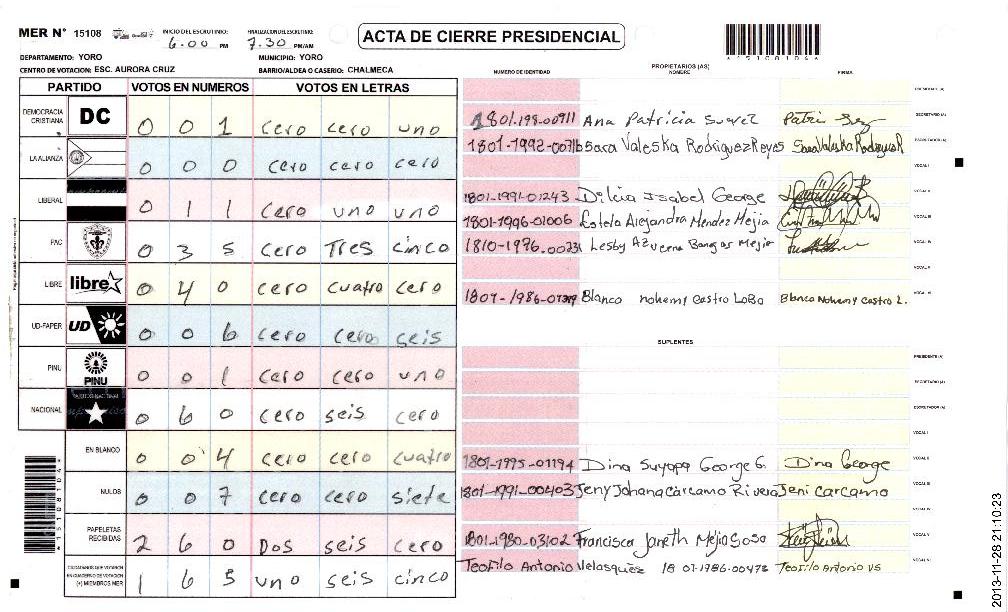 MER N° 15108 INICIO DEL ESCRUTINIO: 6.00 PM FINALIZACION DEL ESCRUTINIO: 7.30 PM/AM
ACTA DE CIERRE PRESIDENCIAL
*15108104*
DEPARTAMENTO: YORO MUNICIPIO: YORO
CENTRO DE VOTACION: ESC. AURORA CRUZ BARRIO/ALDEA O CASERIO: CHALMECA
NUMERO DE IDENTIDAD PROPIETARIOS (AS) NOMBRE FIRMA
PARTIDO VOTOS EN NUMEROS VOTOS EN LETRAS
DEMOCRACIA CRISTIANA DC 0 0 1 cero cero uno
LA ALIANZA 0 0 0 cero cero cero
LIBERAL 0 1 1 cero uno uno
PAC 0 3 5 cero Tres cinco
LIBRE libre 0 4 0 cero cuatro cero
UD-FAPER UD 0 0 6 cero cero seis
PINU PINU 0 0 1 cero cero uno
NACIONAL 0 6 0 cero seis cero
EN BLANCO 0 0 4 cero cero cuatro
NULOS 0 0 7 cero cero siete
PAPELETAS RECIBIDAS 2 6 0 Dos seis cero
CIUDADANOS QUE VOTARON EN CUADERNO DE VOTACION (+) MIEMBROS MER 1 6 5 uno seis cinco
PRESIDENTE (A)
Ana Patricia Suarez SECRETARIO (A)
Sara Valeska Rodriguez Reyes Sara Valeska Rodriguez R ESCRUTADOR (A)
VOCAL I
1801-1991-01243 Dilcia Isabel George VOCAL II
1801-1996-01006 Estela Alejandra Mendez Mejia VOCAL III
Lesby Azucena Bangas Mejia VOCAL IV
VOCAL V
Blanca Nohemy Castro Lobo Blanca Nohemy Castro L. VOCAL VI
SUPLENTES
PRESIDENTE (A)
SECRETARIO (A)
ESCRUTADOR (A)
VOCAL I
1801-1995-01194 Dina Suyapa George G. Dina George VOCAL II
1801-1991-00403 Jeny Johana Carcamo Rivera Jeni Carcamo VOCAL III
VOCAL IV
1801-1980-03102 Francisca Janeth Mejia Sosa VOCAL V
Teofilo Antonio Velasquez 18 01-1986-00473 Teofilo Antonio VS VOCAL VI
2013-11-28 21:10:23